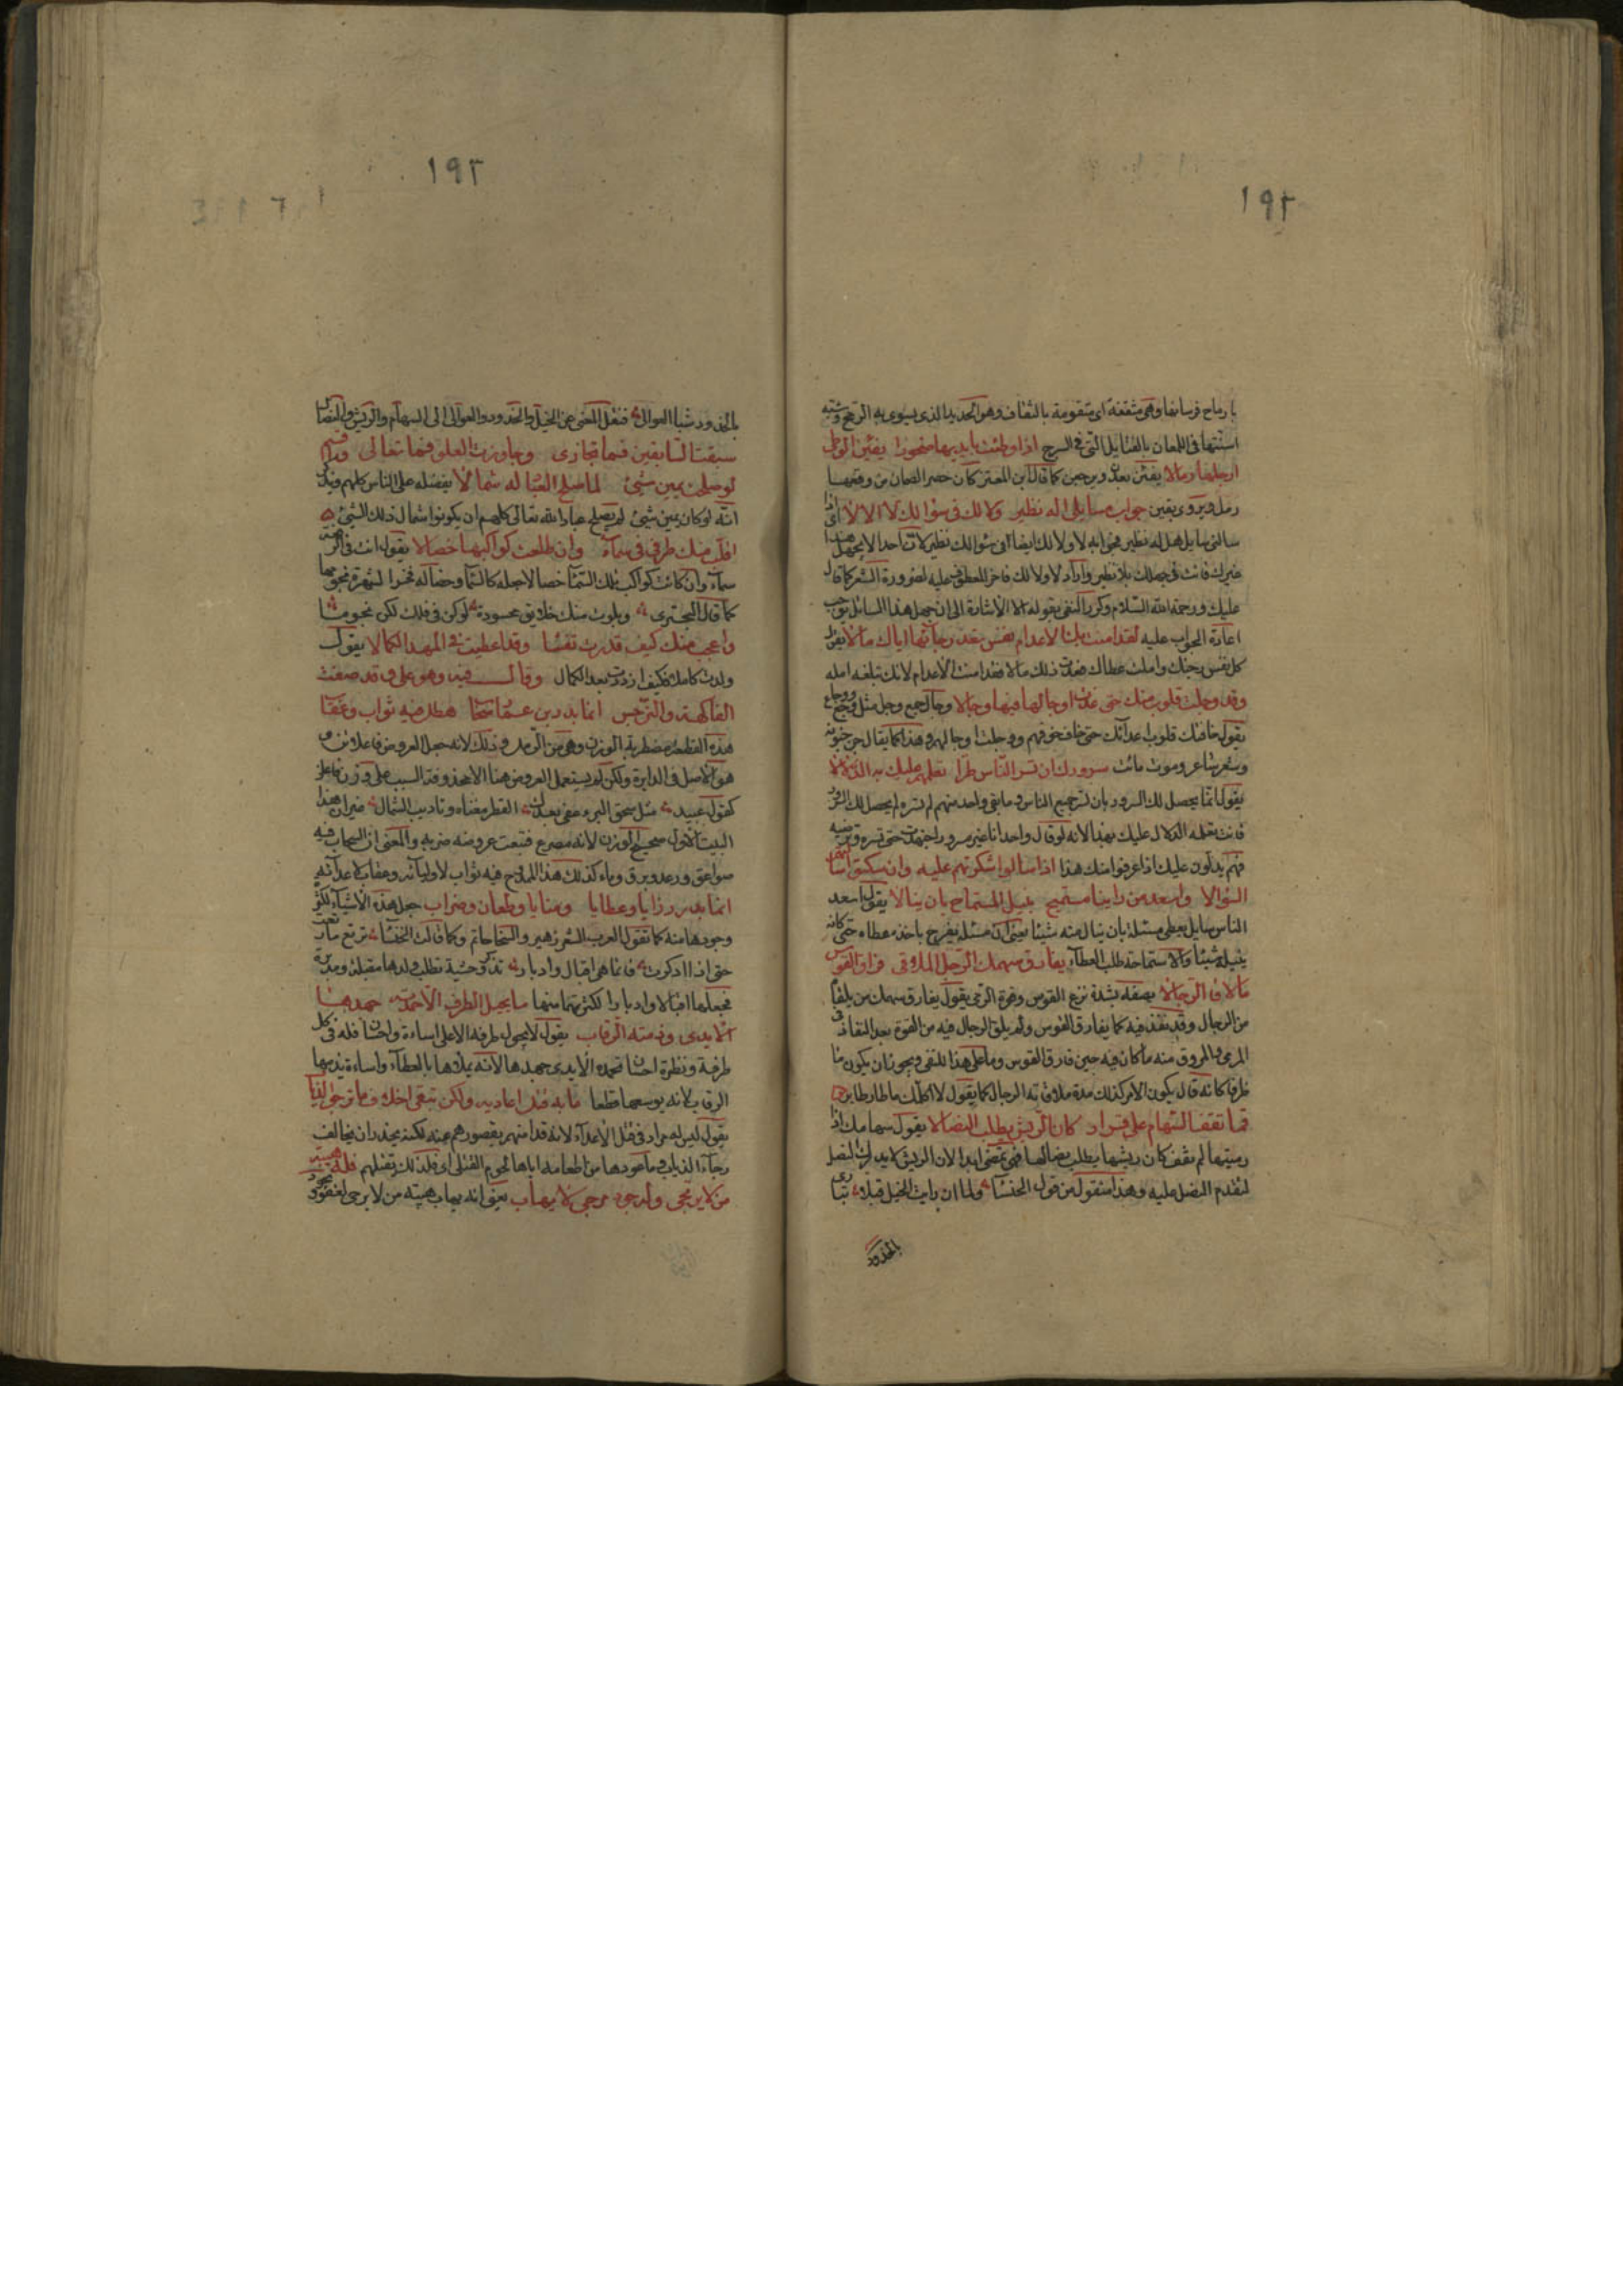 ١٩٢
با رماح فرسانها وهى مثقفة اى متقومة بالثقاف وهو الحديد الذى يسوى به الرمح وشبه
اسنتها فى اللمعان بالفتايل التى فى السرج اذا وطئت بايديها صخورا يفئن لوطئ
ارجلها رمالا يفئن يعدن ويرجعن كما قال ابن المعتز كأن حصى الصمان من وقعها
رمل ويروى بقين جواب مسايلى اله نظير ولا لك فى سؤالك لا الا لا اى اذا
سالنى سايل هل له نظير فجوابه لا ولا لك ايضا فى سؤالك نظير لان احدا لا يجهل هذا
غيرك فانت فى جهلك بلا نظير واراد لا ولا لك فاخر المعطوف عليه لضرورة الشعر كما قال
عليك ورحمة الله السلام وكرر النفى بقوله الا لا اشارة الى ان جهل هذا السائل يوجب
اعادة الجواب عليه لقد امنت بك الاعدام نفس تعد رجاءها اياك مالا يقول
كل نفس رجتك واملت عطاك فعدت ذلك مالا فقد امنت الاعدام لانك تبلغه امله
وقد وجلت قلوب منك حتى غدت اوجالها فيها وجالا وجال جمع وجل مثل وجع ووجاع
يقول خافتك قلوب اعدائك حتى خاف خوفهم ووجلت اوجالهم وهذا كما يقال جن جنونه
وشعر شاعر وموت مائت سرورك ان تسر الناس طرا تعلمهم عليك به الدلالا
يقول انما يحصل لك السرور بان تسر جميع الناس وما بقى واحد منهم لم تسره لم يحصل لك السرور
فانت تعلمه الدلال عليك بهذا لانه لو قال واحد انا غير مسرور اجتهدت حتى تسره وترضيه
فهم يدلون عليك اذا عرفوا منك هذا اذا سالوا شكرتهم عليه وان سكتوا سألتهم
السؤالا واسعد من راينا مستميح ينيل المستماح بان ينالا يقول اسعد
الناس سايل يعطى مسئله بان ينال منه شيئا يعنى ان مسئله يفرح باخذ عطاه حتى كانه
ينيله شيئا والاستماحة طلب العطاء يفارق سهمك الرجل الملاقى فراق القوس
ما لاقى الرجالا يصفه بشدة نزع القوس وقوة الرمى يقول يفارق سهمك من يلقاه
من الرجال وقد نفذ فيه كما يفارق القوس ولم يلق الرجال فيه من القوة بعد النفاذ فى
المرمى والمروق منه ما كان فيه حين فارق القوس وما على هذا للنفى ويجوز ان يكون ما
ظرفا كانه قال يكون الامر كذلك مدة ملاقاته الرجال كما يقول لا اكلمك ما طار طاير
فما تقف السهام على قرار كان الريش يطلب النصالا يقول سهامك اذا
رميتها لم تقف كان ريشها يطلب نصالها فهى تمضى ابدا لان الريش لا يدرك النصل
لتقدم النصل عليه وهذا منقول من قول الخنسا ولما ان رايت الخيل قبلا تبارى
بالخدود
١٩٣
بالخدود شبا العوالى فنقل المعنى عن الخيل والخدود والعوالى الى السهام والريش والنصال
سبقت السابقين فما تجارى وجاوزت العلو فما تعالى واقسم
لو صلحت يمين شيئ لما صلح العباد له شمالا يفضله على الناس كلهم ويذكر
انه لو كان يمين شيئ لم يصلح عباد الله تعالى كلهم ان يكونوا شمال ذلك الشيئ
اقلب منك طرفى فى سماء وان طلعت كواكبها خصالا يقول انت فى الرفعة
سماء وان كانت كواكب تلك السماء خصالا جعله كالسما وخصاله نجوما لشهرة نجومها
كما قال البحترى وبلوت منك خلايق محسودة لو كن فى فلك لكن نجوما
واعجب منك كيف قدرت تنشا وقد اعطيت فى المهد الكمالا يقول
ولدت كاملا فكيف ازددت بعد الكمال وقال فيه وهو على فرقد صفت
الفاكهة والنرجس انما بدر بن عمار سحاب هطل فيه ثواب وعقاب
هذه القطعة مضطربة الوزن وهى من الرمل وذلك لانه جعل العروض فاعلاتن
هو الاصل فى الدايرة ولكن لم يستعمل العروض هنا الا محذوفة السبب على وزن فاعلن
كقول عبيد مثل سحق البرد عفى بعدك القطر مغناه وتاويب الشمال غير ان هذا
البيت الاول صحيح الوزن لانه مصرع فتبعت عروضه ضربه والمعنى ان السحاب فيه
صواعق ورعد وبرق وماء كذلك هذا الممدوح فيه ثواب لاوليائه وعقاب لاعدائه
انما بدر رزايا وعطايا ومنايا وطعان وضراب جعل هذه الاشياء لكثرة
وجودها منه كما تقول العرب الشعر زهير والسخا حاتم وكما قالت الخنسا ترتع ما رتعت
حتى اذا ادكرت فانما هى اقبال وادبار تذكر وحشية تطلب ولدها مقبلة ومدبرة
فجعلها اقبالا وادبارا لكثرتهما منها ما يجيل الطرف الا حمدته جهدها
الايدى وذمته الرقاب يقول لا يحيل طرفه الا على اساءة واحسان فله فى كل
طرفة ونظرة احسان تحمده الايدى جهدها لانه يملاها بالعطاء واساءة تذمها
الرقاب لانه يوسعها قطعا ما به قتل اعاديه ولكن يتقى اخلاف ما ترجو الذئاب
يقول ليس له مراد فى قتل الاعداء لانه قد امنهم بقصورهم عنه لكنه يحذر ان يخالف
رجاء الذياب وما عودها من اطعامه اياها لحوم القتلى اى فلذلك يقتلهم فله هيبة
من لا يرتجى وله جود مرجى لا يهاب يعنى انه يهاب هيبة من لا يرجى لعفو